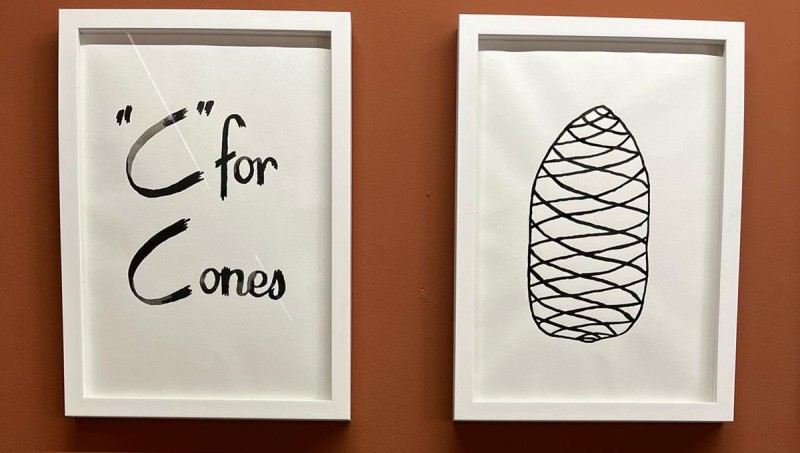 "C" for
Cones